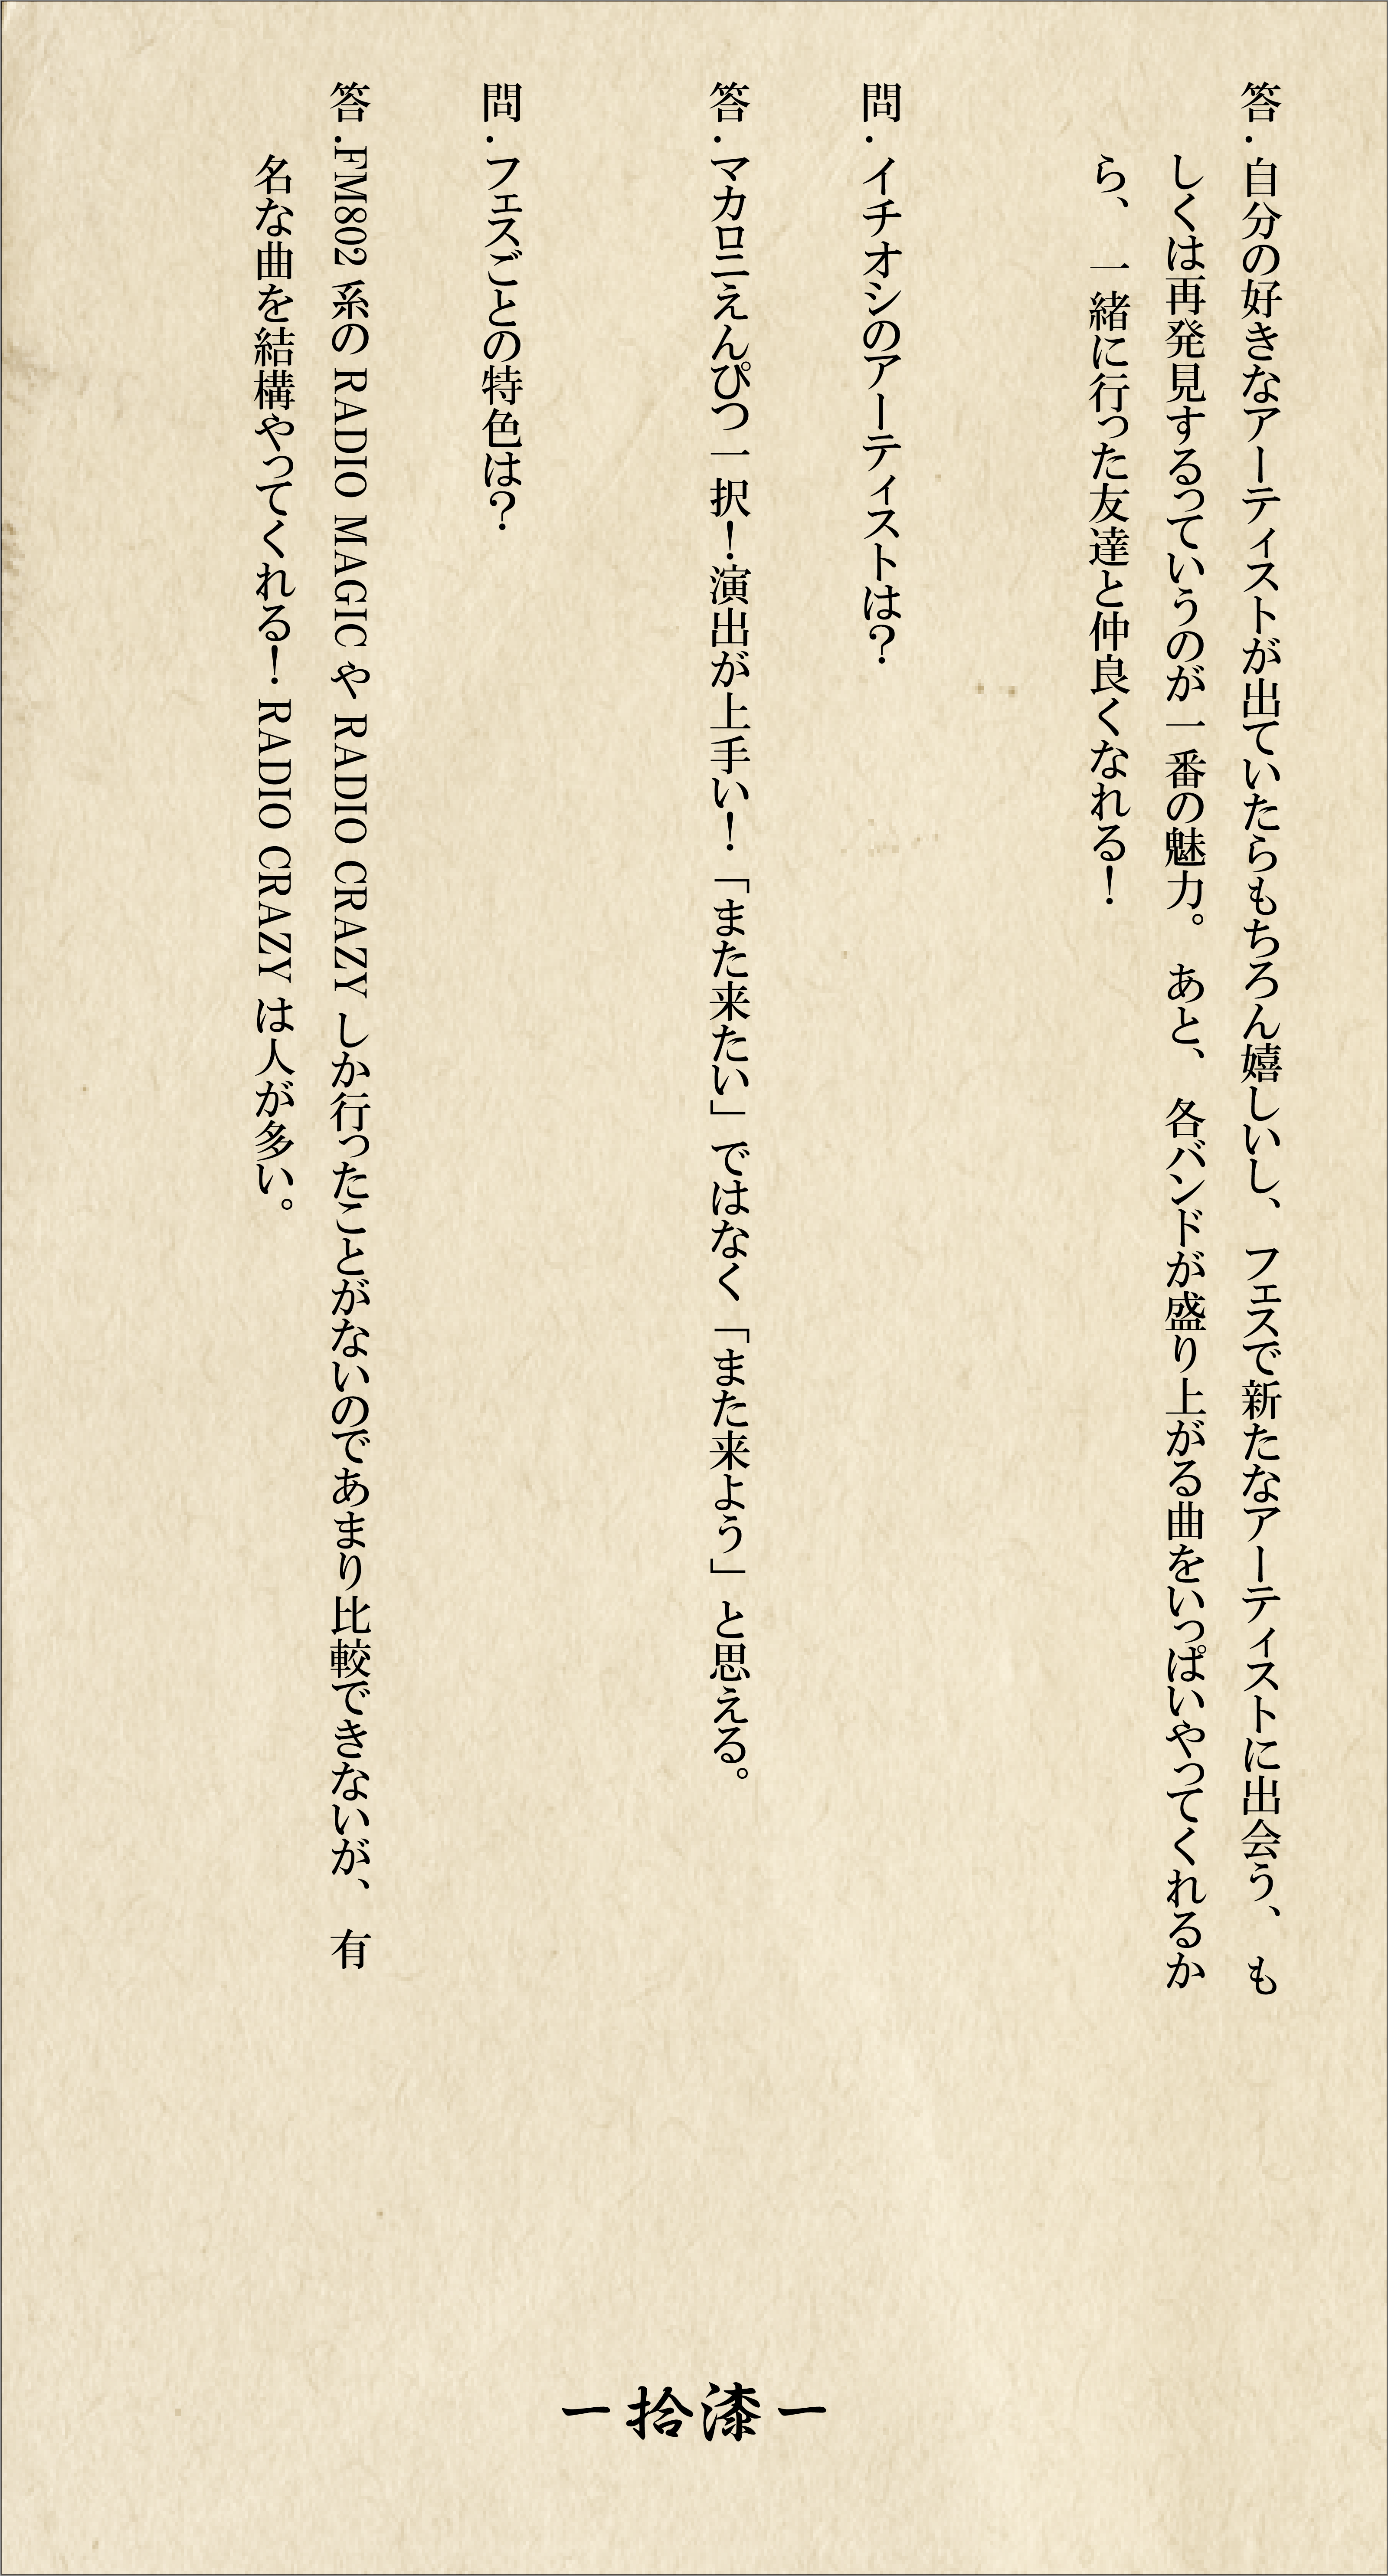 答．自分の好きなアーティストが出ていたらもちろん嬉しいし、フェスで新たなアーティストに出会う、も
しくは再発見するっていうのが一番の魅力。あと、各バンドが盛り上がる曲をいっぱいやってくれるか
ら、一緒に行った友達と仲良くなれる！
問．イチオシのアーティストは？
答．マカロニえんぴつ一択！演出が上手い！「また来たい」ではなく「また来よう」と思える。
問．フェスごとの特色は？
答．FM802 系の RADIO MAGIC や RADIO CRAZY しか行ったことがないのであまり比較できないが、有
名な曲を結構やってくれる！RADIO CRAZY は人が多い。
ー拾漆ー